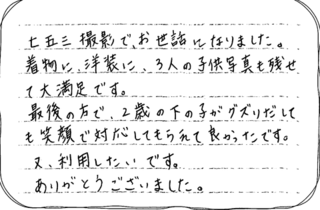 七五三撮影で、お世話になりました。
着物に、洋装に、3人の子供写真も残せ
て大満足です。
最後の方で、2歳の下の子がグズりだして
も笑顔で対応してもらえて良かったです。
又、利用したいです。
ありがとうございました。